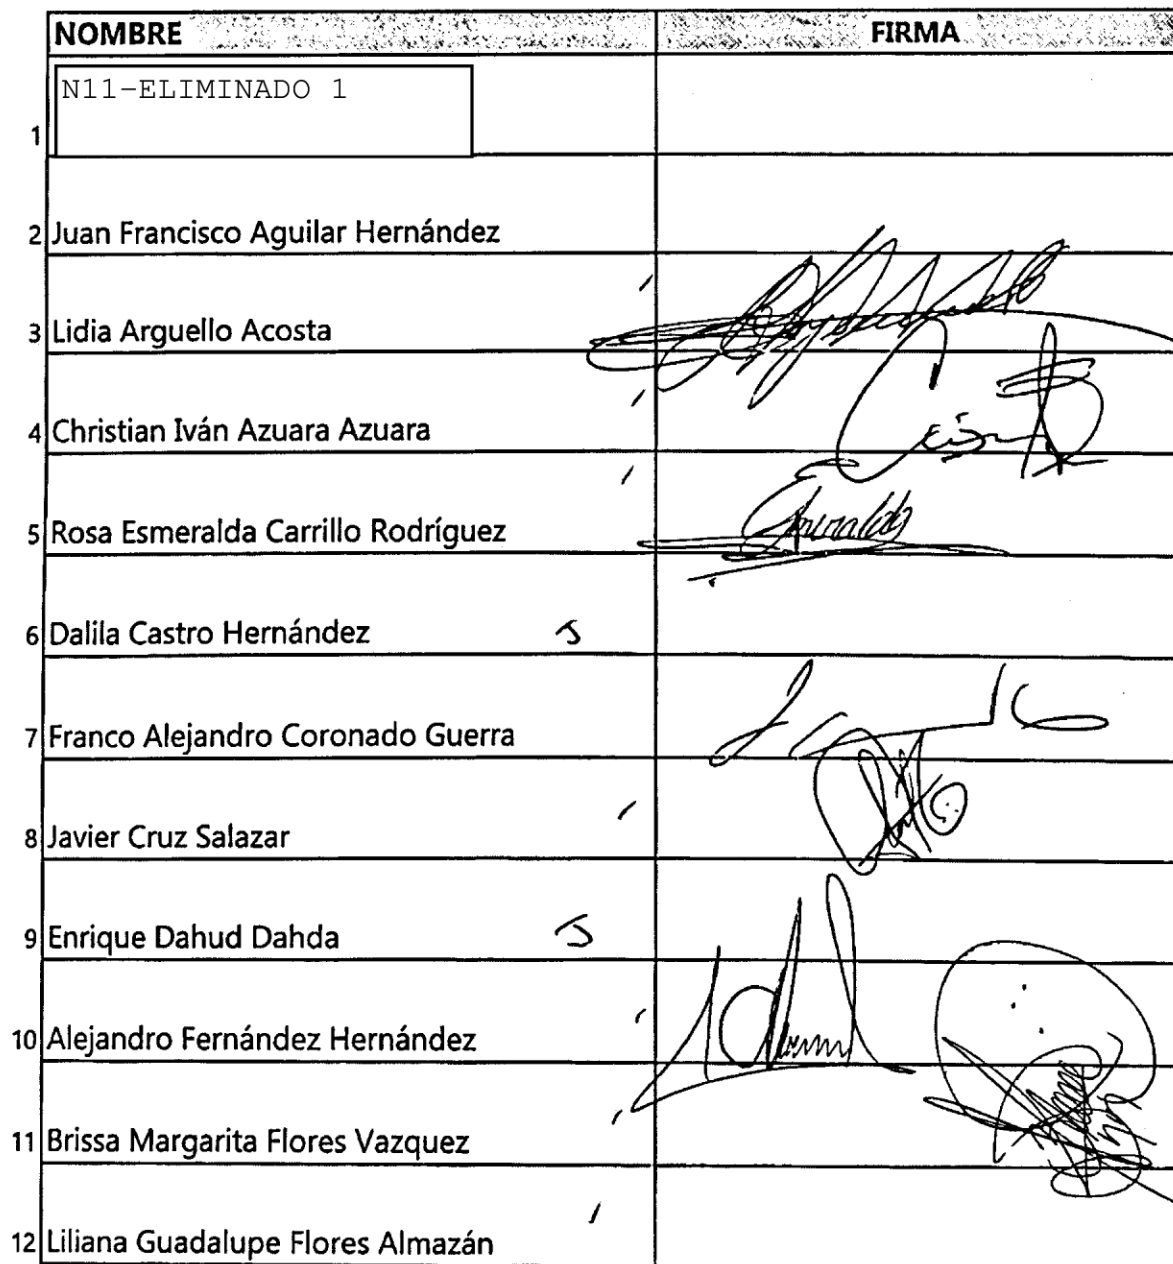 NOMBRE FIRMA
N11-ELIMINADO 1
1
2 Juan Francisco Aguilar Hernández
3 Lidia Arguello Acosta
4 Christian Iván Azuara Azuara
5 Rosa Esmeralda Carrillo Rodríguez
6 Dalila Castro Hernández
7 Franco Alejandro Coronado Guerra
8 Javier Cruz Salazar
9 Enrique Dahud Dahda
10 Alejandro Fernández Hernández
11 Brissa Margarita Flores Vazquez
12 Liliana Guadalupe Flores Almazán